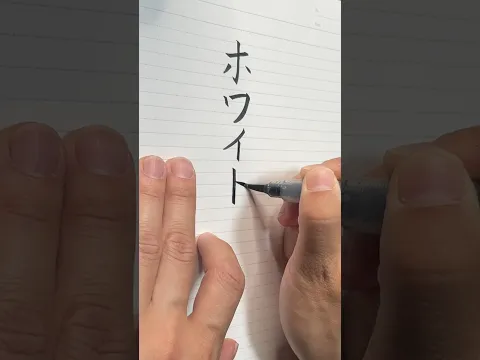 ホワイト